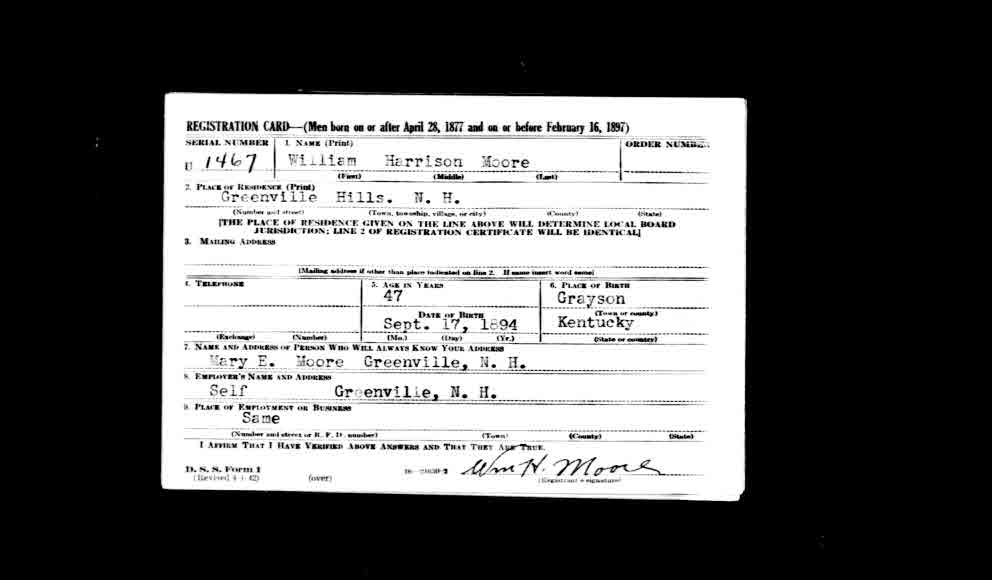 REGISTRATION CARD—(Men born on or after April 28, 1877 and on or before February 16, 1897)
SERIAL NUMBER 1. NAME (Print) ORDER NUMBER
U 1467 William Harrison Moore
(First) (Middle) (Last)
2. PLACE OF RESIDENCE (Print)
Greenville Hills. N. H.
(Number and street) (Town, township, village, or city) (County) (State)
[THE PLACE OF RESIDENCE GIVEN ON THE LINE ABOVE WILL DETERMINE LOCAL BOARD
JURISDICTION; LINE 2 OF REGISTRATION CERTIFICATE WILL BE IDENTICAL]
3. MAILING ADDRESS
[Mailing address if other than place indicated on line 2. If same insert word same]
4. TELEPHONE 5. AGE IN YEARS 6. PLACE OF BIRTH
47 Grayson
DATE OF BIRTH (Town or county)
Sept. 17, 1894 Kentucky
(Exchange) (Number) (Mo.) (Day) (Yr.) (State or country)
7. NAME AND ADDRESS OF PERSON WHO WILL ALWAYS KNOW YOUR ADDRESS
Mary E. Moore Greenville, N. H.
8. EMPLOYER'S NAME AND ADDRESS
Self Greenville, N. H.
9. PLACE OF EMPLOYMENT OR BUSINESS
Same
(Number and street or R. F. D. number) (Town) (County) (State)
I AFFIRM THAT I HAVE VERIFIED ABOVE ANSWERS AND THAT THEY ARE TRUE.
D. S. S. Form 1 Wm H. Moore
(Revised 4-1-42) (over) (Registrant's signature)